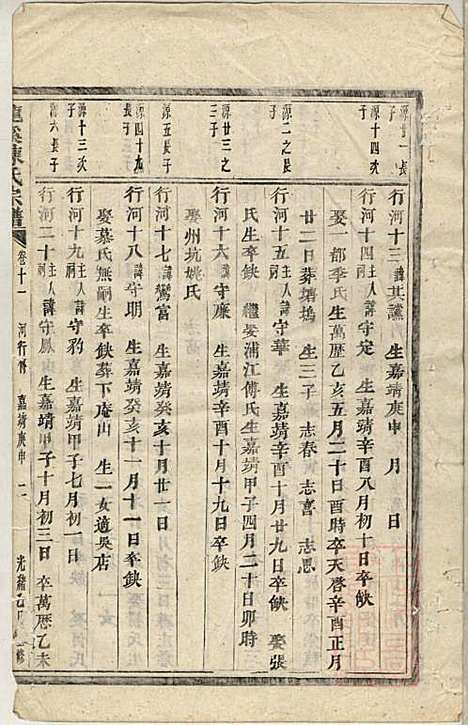 源廿一長子
行河十三 諱其讜 生嘉靖庚申 月 日
源十四次子
行河十四 主人祠 諱守定 生嘉靖辛酉八月初十日卒缺
娶一都季氏生萬歷乙亥五月二十日酉時卒天啓辛酉正月
廿二日葬塘塢 生三子 志春 志喜 志思
源二之長子
行河十五 主人祠 諱守華 生嘉靖辛酉十月廿九日卒缺 娶張
氏生卒缺 繼娶浦江傅氏生嘉靖甲子四月二十日卯時
源廿三之子
行河十六 諱守廉 生嘉靖辛酉十月十九日卒缺
娶州坑姚氏
源五長子
行河十七 諱鸞富 生嘉靖癸亥十月廿一日
源四十九長子
行河十八 諱守明 生嘉靖癸亥十一月十一日卒缺
娶慕氏無嗣生卒缺葬下庵山 生一女適吳店
源十三次子
行河十九 主人祠 諱守豹 生嘉靖甲子七月初一日
源六長子
行河二十 主人祠 諱守鳳 生嘉靖甲子十月初三日 卒萬歷乙未
陳氏宗譜 卷十一 河行傳 嘉靖庚申 二 光緒乙 修